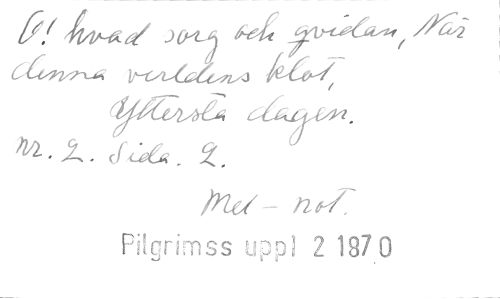 O! hvad sorg och qvidan, När
denna verldens klot,
Yttersta dagen.
nr. 2. Sida. 2.
Mel - not.
Pilgrimss uppl 2 1870